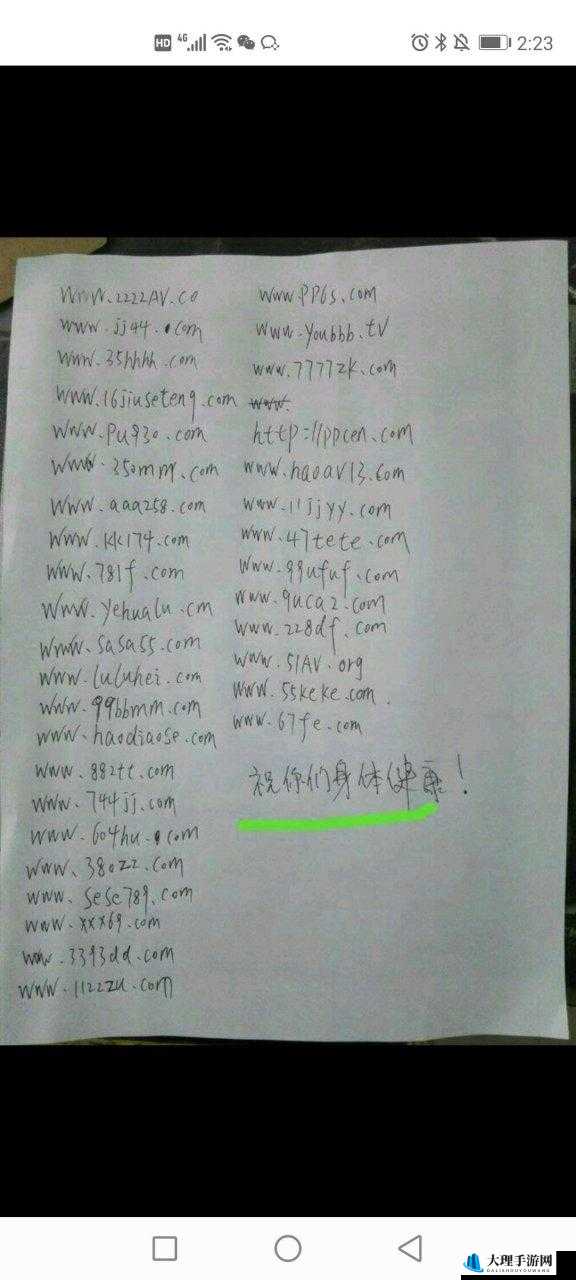 HD 4G 2:23
www.2222AV.co
www.jj44.com
www.35hhhh.com
www.16jiuseteng.com
www.pu930.com
www.350mm.com
www.aaa258.com
www.kk174.com
www.781f.com
www.yehualu.cm
www.sasa55.com
www.luluhei.com
www.99bbmm.com
www.haodiaose.com
www.882tt.com
www.744jj.com
www.604hu.com
www.380zz.com
www.sese789.com
www.xxx69.com
www.3393dd.com
www.1122zu.com
www.PP6s.com
www.youbbb.tv
www.7777zk.com
www.
http://ppcen.com
www.haoav13.com
www.11jjyy.com
www.47tete.com
www.99ufuf.com
www.9uca2.com
www.228df.com
www.51AV.org
www.55keke.com.
www.67fe.com
祝你们身体健康!
大理手游网
DALISHOUYOUWANG